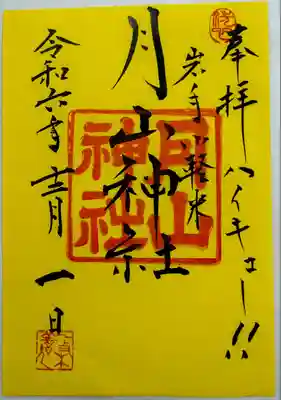 奉拝 ハイキュー!!
岩手 小軽米
月山神社
令和六年十二月一日
月山
神社